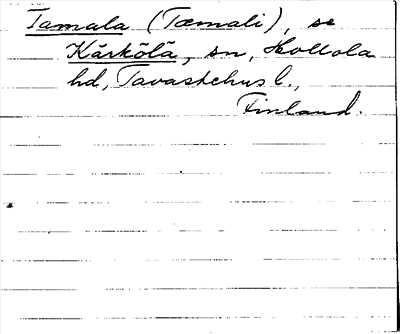 Tamala (Tæmali), se
Kärkölä, sn, Hollola
hd, Tavastehus l.,
Finland.